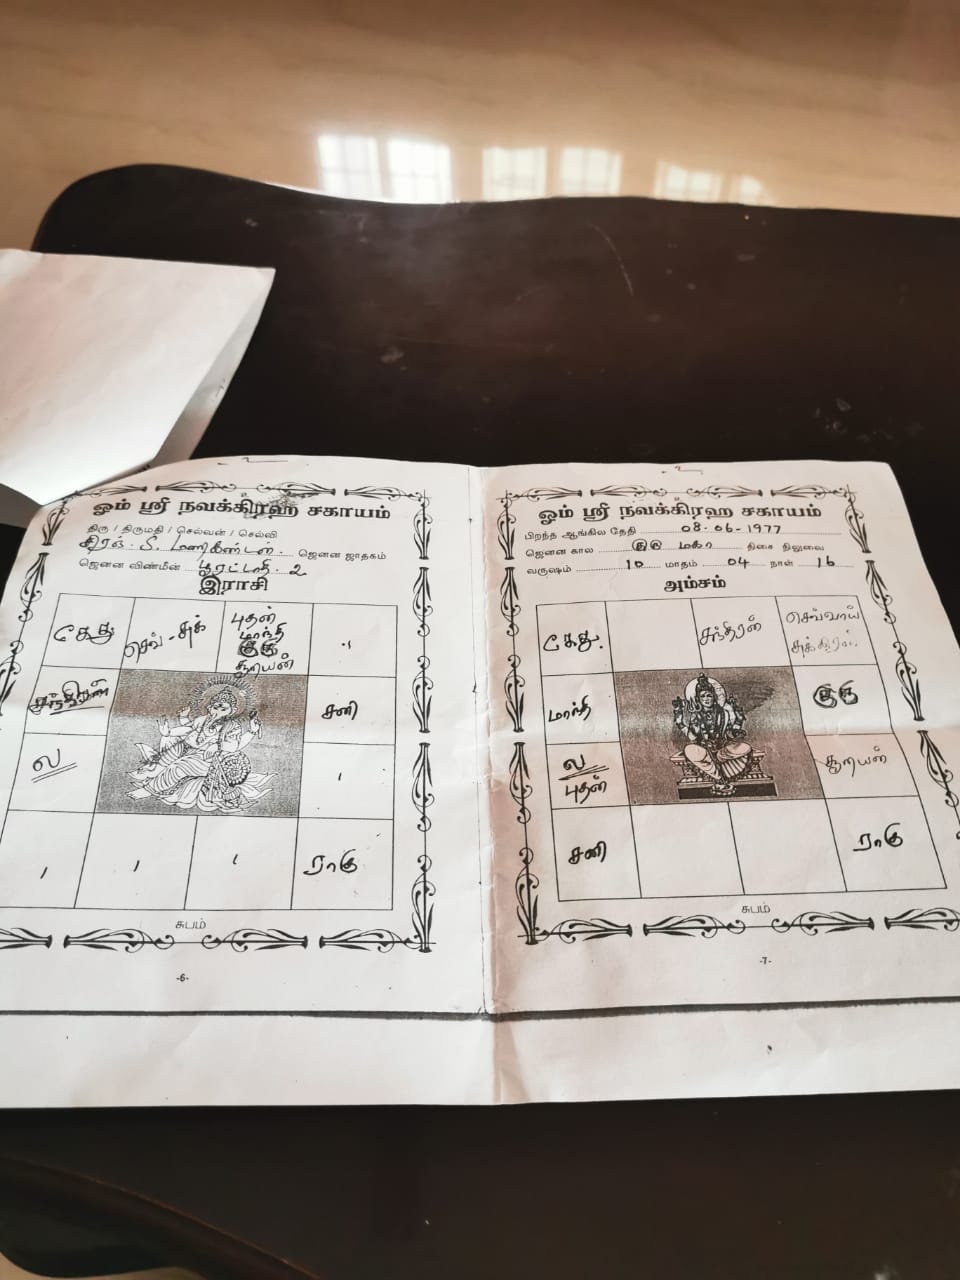 ஓம் ஸ்ரீ நவக்கிரஹ சகாயம்
திரு / திருமதி / செல்வன் / செல்வி
S. மணிகண்டன் ஜெனன ஜாதகம்
ஜெனன விண்மீன் பூரட்டாதி - 2
இராசி
கேது
செவ் - சுக்
புதன்
மாந்தி
குரு
சூரியன்
சந்திரன்
சனி
ல
ராகு
சுபம்
-6-
ஓம் ஸ்ரீ நவக்கிரஹ சகாயம்
பிறந்த ஆங்கில தேதி 08-06-1977
ஜெனன கால குரு மகா திசை நிலுவை
வருஷம் 10 மாதம் 04 நாள் 16
அம்சம்
கேது
சந்திரன்
செவ்வாய்
சுக்கிரன்
மாந்தி
குரு
ல
புதன்
சூரியன்
சனி
ராகு
சுபம்
-7-